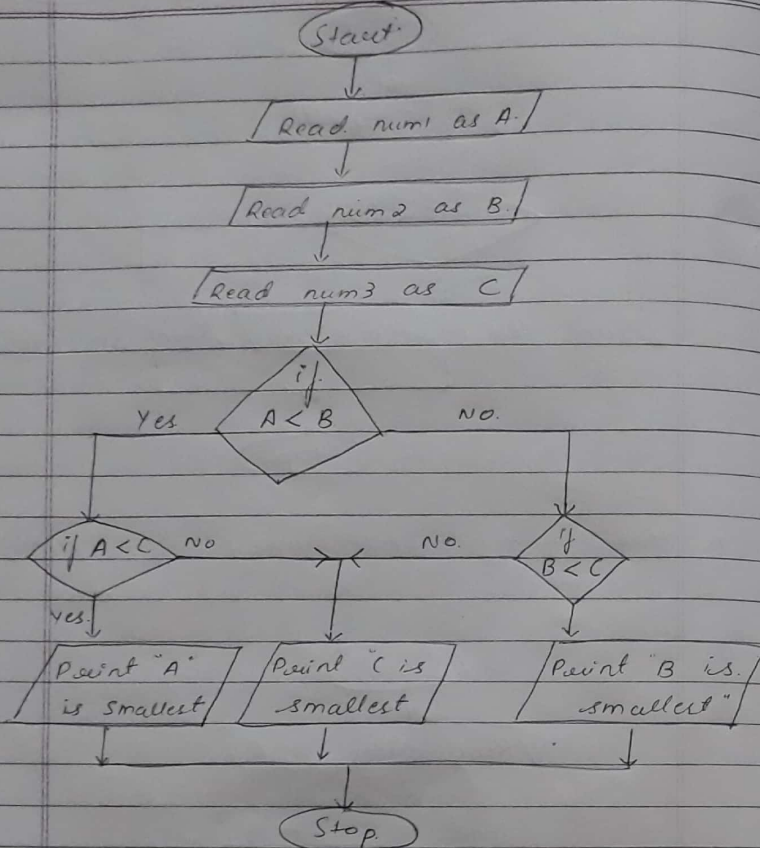 Start.
Read num1 as A.
Read num2 as B.
Read num3 as C
if
A < B
Yes
No.
if A < C
No
No.
if
B < C
yes.
Print "A"
is smallest
Print "C is
smallest
Print "B is.
smallest"
Stop.